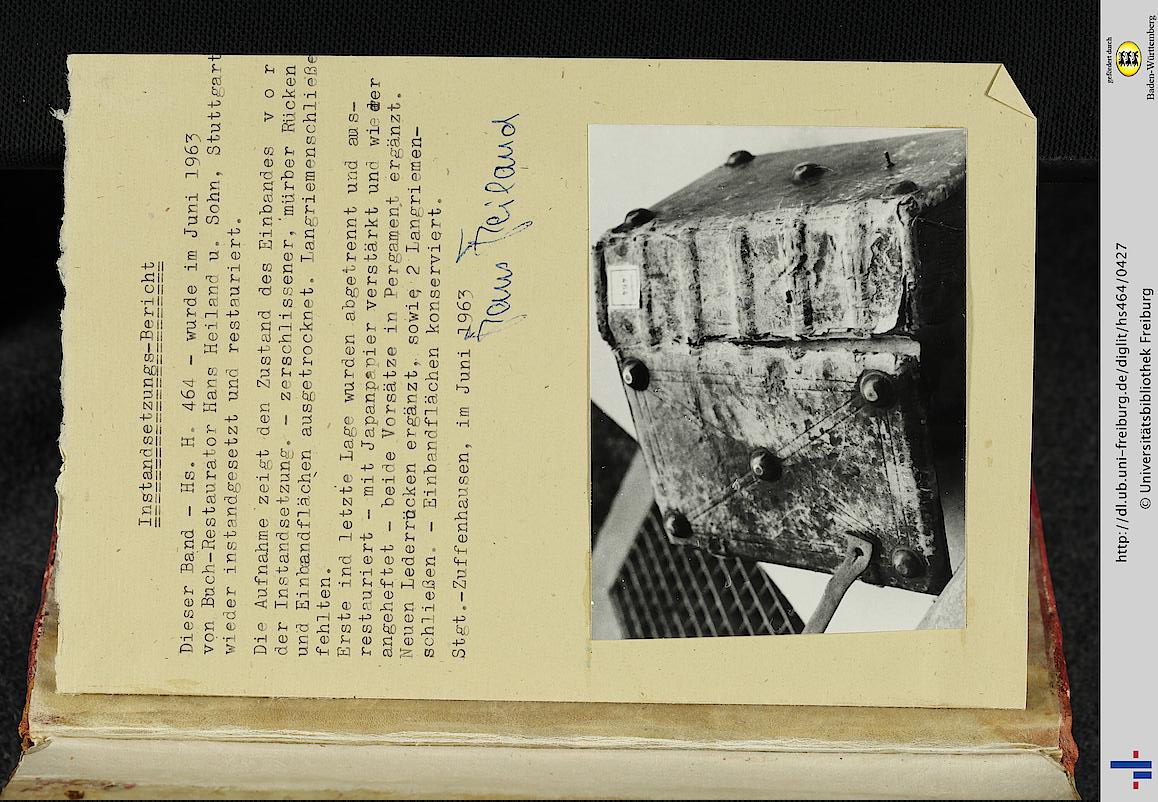 Instandsetzungs-Bericht
Dieser Band - Hs. H. 464 - wurde im Juni 1963
von Buch-Restaurator Hans Heiland u. Sohn, Stuttgart
wieder instandgesetzt und restauriert.
Die Aufnahme zeigt den Zustand des Einbandes v o r
der Instandsetzung. - zerschlissener, mürber Rücken
und Einbandflächen ausgetrocknet. Langriemenschließe
fehlten.
Erste ind letzte Lage wurden abgetrennt und aus-
restauriert - mit Japanpapier verstärkt und wieder
angeheftet - beide Vorsätze in Pergament ergänzt.
Neuen Lederrücken ergänzt, sowie 2 Langriemen-
schließen. - Einbandflächen konserviert.
Stgt.-Zuffenhausen, im Juni 1963
Hans Heiland
gefördert durch
Baden-Württemberg
http://dl.ub.uni-freiburg.de/diglit/hs464/0427
© Universitätsbibliothek Freiburg